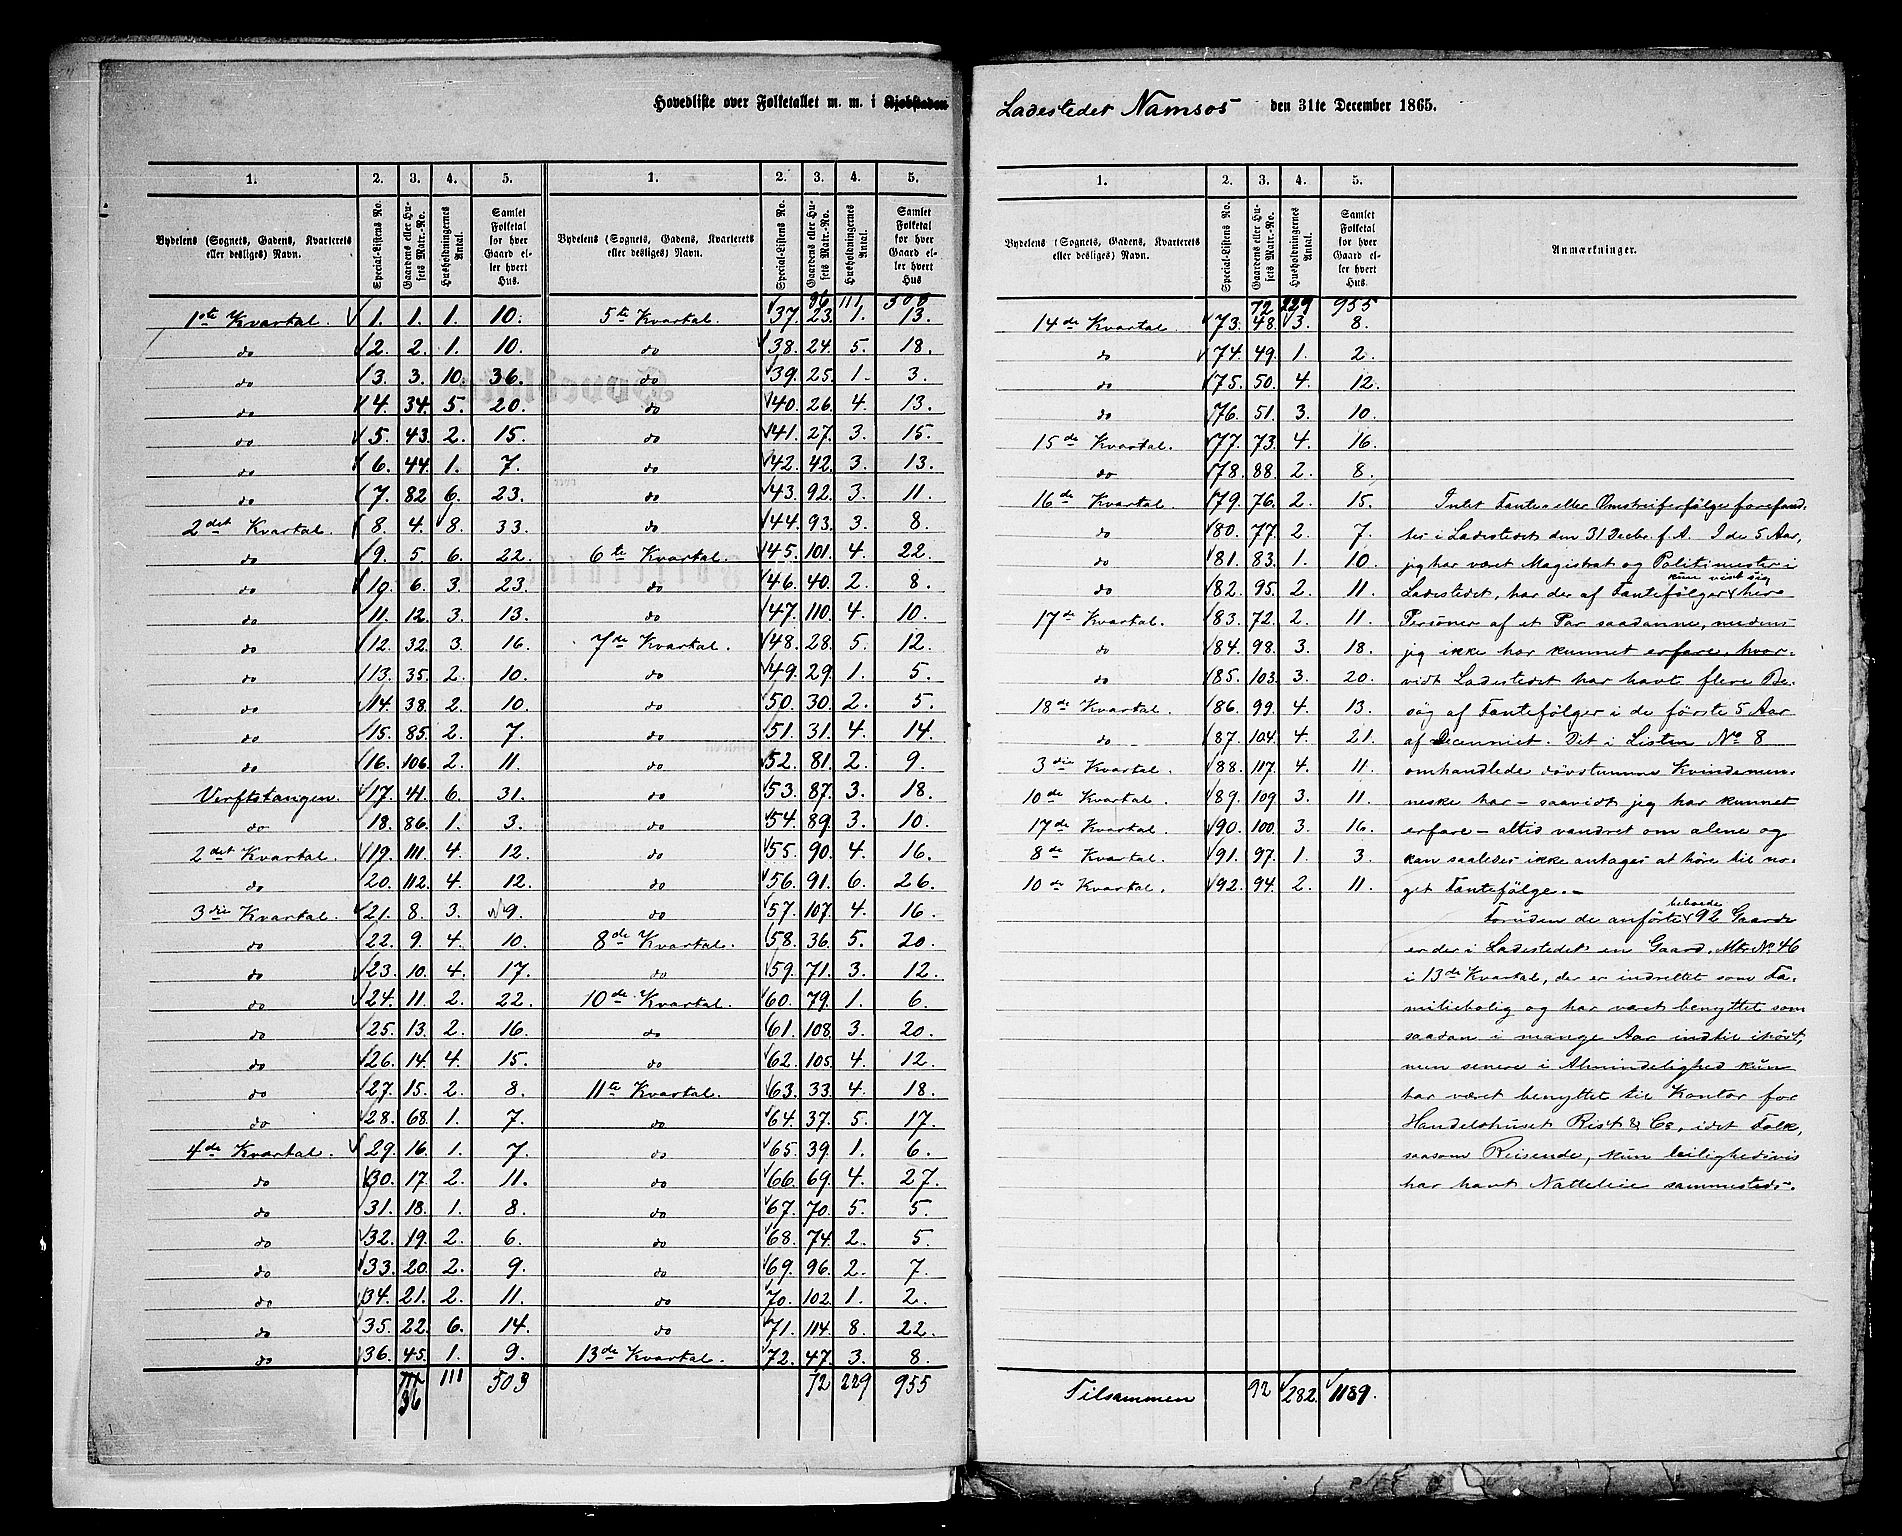 Hovedliste over Folketallet m. m. i Kjøbstaden Ladestedet Namsos den 31te December 1865.
1. 2. 3. 4. 5. 1. 2. 3. 4. 5.
Bydelens (Sognets, Gadens, Kvarterets eller desliges) Navn. Special-Listens No. Gaardens eller Husets Matr.-No. Husholdningernes Antal. Samlet Folketal for hver Gaard eller hvert Hus. Bydelens (Sognets, Gadens, Kvarterets eller desliges) Navn. Special-Listens No. Gaardens eller Husets Matr.-No. Husholdningernes Antal. Samlet Folketal for hver Gaard eller hvert Hus
36 111 503
1ste Kvartal. 1. 1. 1. 10. 5te Kvartal. 37. 23. 1. 13.
do 2. 2. 1. 10. do 38. 24. 5. 18.
do 3. 3. 10. 36. do 39. 25. 1. 3.
do 4. 34. 5. 20. do 40. 26. 4. 13.
do 5. 43. 2. 15. do 41. 27. 3. 15.
do 6. 44. 1. 7. do 42. 42. 3. 13.
do 7. 82 6. 23. do 43. 92. 3. 11.
2det Kvartal. 8. 4. 8. 33. do 44. 93. 3. 8.
do 9. 5 6. 22. 6te Kvartal. 45. 101. 4. 22.
do 10. 6. 3. 23. do 46. 40. 2. 8.
do 11. 12 3. 13. do 47. 110. 4. 10.
do 12. 32. 3. 16. 7de Kvartal. 48. 28. 5. 12.
do 13. 35. 2. 10. do 49. 29. 1. 5.
do 14. 38. 2. 10. do 50. 30. 2. 5.
do 15. 85. 2. 7. do 51. 31. 4. 14.
do 16. 106. 2. 11. do 52. 81. 2. 9.
Verftstangen. 17. 41. 6. 31. do 53. 87. 3. 18.
do 18. 86. 1. 3. do 54. 89. 3. 10.
2det Kvartal. 19. 111. 4. 12. do 55. 90. 4. 16.
do 20. 112. 4. 12. do 56. 91. 6. 26.
3die Kvartal. 21. 8. 3. 9. do 57. 107. 4. 16.
do 22. 9. 4. 10. 8de Kvartal. 58. 36. 5. 20.
do 23. 10. 4. 17. do 59. 71. 3. 12.
do 24. 11. 2. 22. 10de Kvartal. 60. 79. 1. 6.
do 25. 13. 2. 16. do 61. 108. 3. 20.
do 26. 14. 4. 15. do 62. 105. 4. 12.
do 27. 15. 2. 8. 11te Kvartal. 63. 33. 4. 18.
do 28. 68. 1. 7. do 64. 37. 5. 17.
4de Kvartal. 29. 16. 1. 7. do 65. 39. 1. 6.
do 30. 17. 2. 11. do 66. 69. 4. 27.
do 31. 18. 1. 8. do 67. 70. 5. 5.
do 32. 19. 2. 6. do 68. 74. 2. 5.
do 33. 20. 2. 9. do 69. 96. 2. 7.
do 34. 21. 2. 11. do 70. 102. 1. 2.
do 35. 22. 6. 14. do 71. 114. 8. 22.
do 36. 45. 1. 9. 13de Kvartal. 72. 47. 3. 8.
111 503 72 229 955
36
1. 2. 3. 4. 5.
Bydelens (Sognets, Gadens, Kvarterets eller desliges) Navn. Special-Listens No. Gaardens eller Husets Matr.-No. Husholdningernes Antal. Samlet Folketal for hver Gaard eller hvert Hus. Anmærkninger.
72 229 955
14de Kvartal. 73. 48. 3. 8.
do 74. 49. 1. 2.
do 75. 50. 4. 12.
do 76. 51. 3. 10.
15de Kvartal. 77. 73. 4. 16.
do 78. 88. 2. 8.
16de Kvartal. 79. 76. 2. 15. Intet Fante- eller Omstreiferfølge forefand-
do 80. 77. 2. 7. tes i Ladestedet den 31 Decbr. f. A. I de 5 Aar,
do 81. 83. 1. 10. jeg har været Magistrat og Politimester i
kun vist sig
do 82. 95. 2. 11. Ladestedet, har der af Fantefølger flere
17de Kvartal. 83. 72. 2. 11 Personer af et Par saadanne, medens
do 84. 98. 3. 18. jeg ikke har kunnet erfare, hvor-
do 85. 103. 3. 20. vidt Ladestedet har havt flere Be-
18de Kvartal. 86. 99. 4. 13. søg af Fantefølger i de første 5 Aar
do 87. 104. 4. 21. af Decenniet. Det i Listen No 8
3die Kvartal. 88. 117. 4. 11. omhandlede døvstumme Kvindemen-
10de Kvartal. 89. 109. 3. 11. neske har – saavidt jeg har kunnet
17de Kvartal. 90. 100. 3. 16. erfare – altid vandret om alene og
8de Kvartal. 91. 97. 1. 3. kan saaledes ikke antages at høre til no-
10de Kvartal. 92. 94. 2. 11. get Fantefølge. –
beboede
Foruden de anførte 92 Gaarde
er der i Ladestedet en Gaard, Mtr. No 46
i 13de Kvartal, der er indrettet som Fa-
miliebolig og har været benyttet som
saadan i mange Aar indtil ihøst,
men senere i Almindelighed kun
har været benyttet til Kontor for
Handelshuset Rist & Co, idet Folk,
saasom Reisende, kun leilighedsvis
har havt Natteleie sammesteds.
Tilsammen 92 282. 1189.